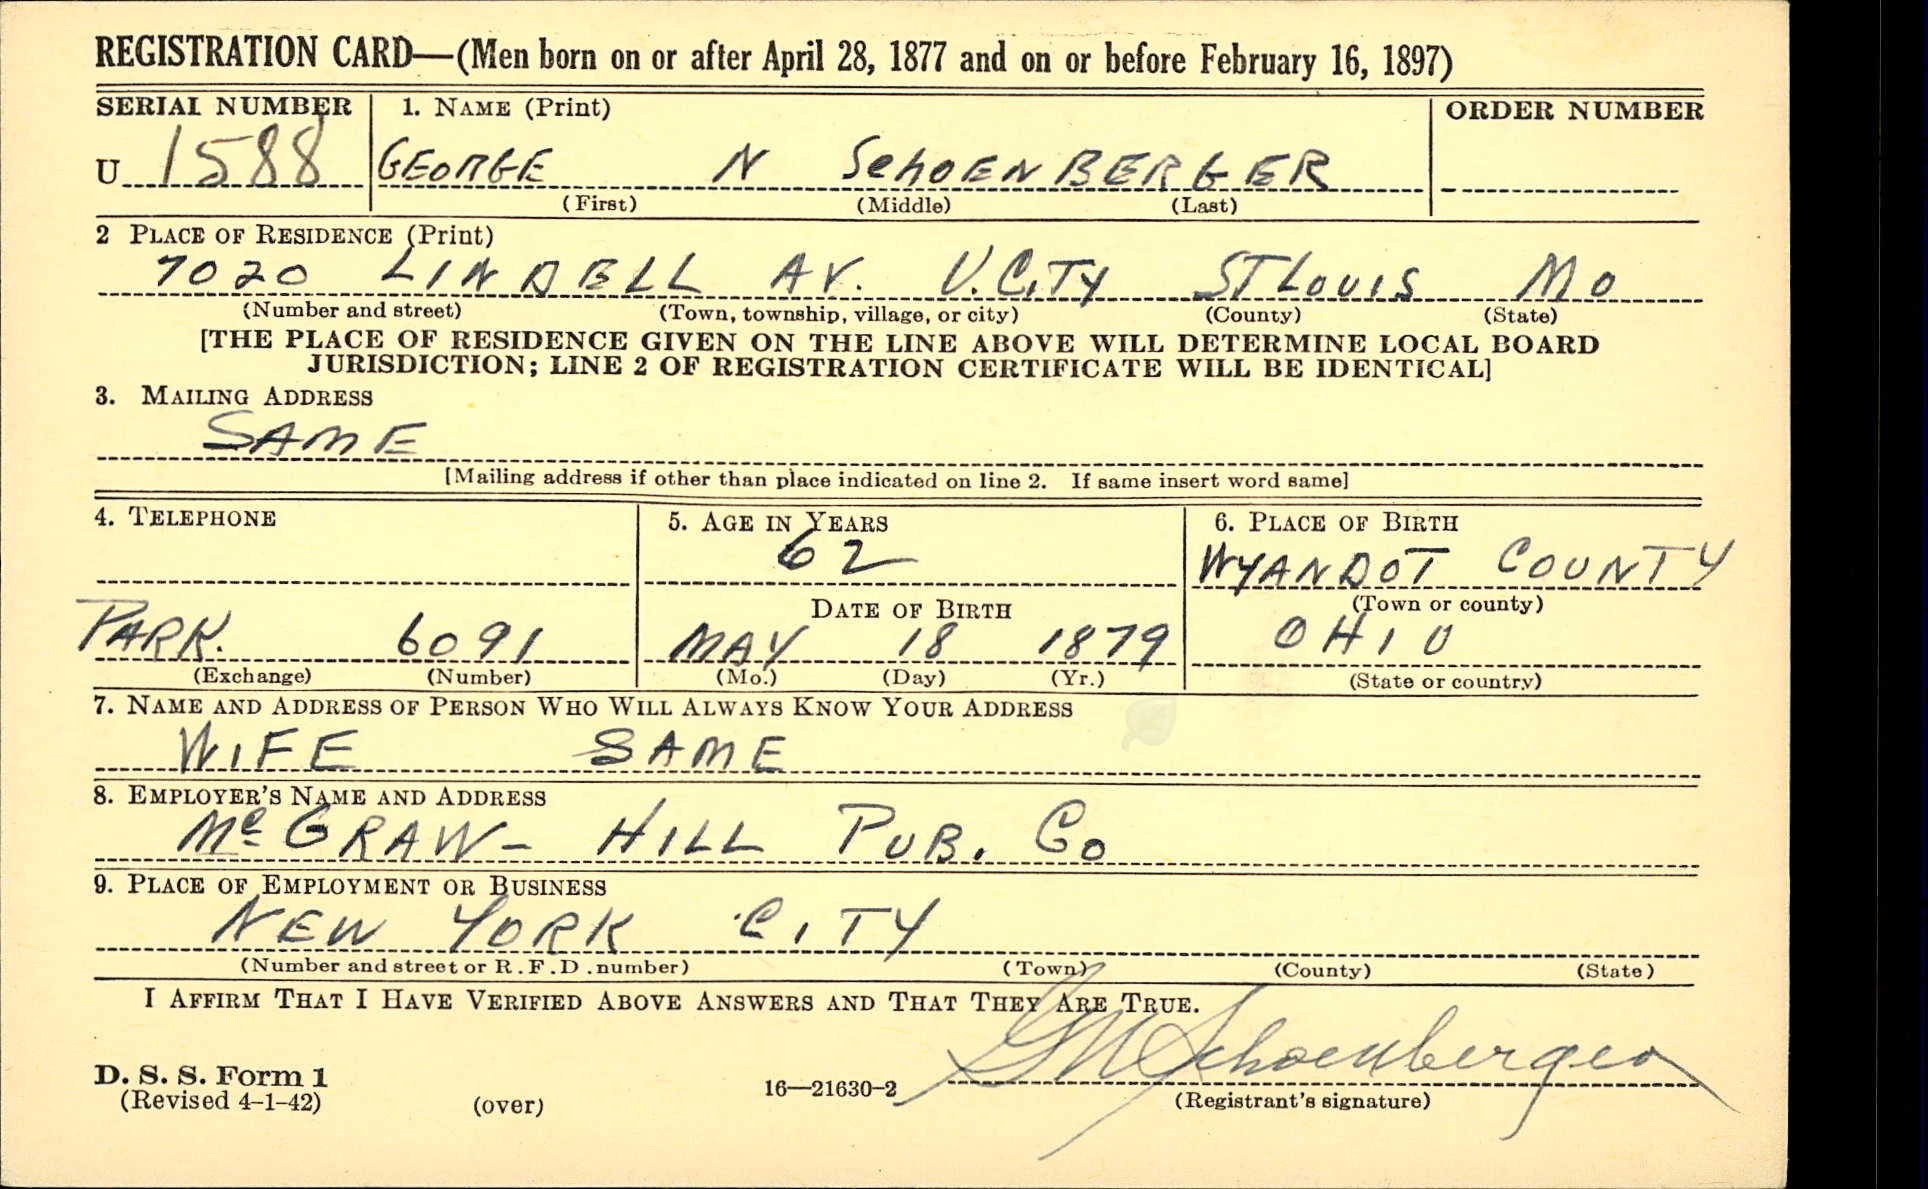 REGISTRATION CARD—(Men born on or after April 28, 1877 and on or before February 16, 1897)
SERIAL NUMBER 1. NAME (Print) ORDER NUMBER
U 1588 GEORGE N SCHOENBERGER
(First) (Middle) (Last)
2 PLACE OF RESIDENCE (Print)
7020 LINDELL AV. U. CITY ST LOUIS MO
(Number and street) (Town, township, village, or city) (County) (State)
[THE PLACE OF RESIDENCE GIVEN ON THE LINE ABOVE WILL DETERMINE LOCAL BOARD
JURISDICTION; LINE 2 OF REGISTRATION CERTIFICATE WILL BE IDENTICAL]
3. MAILING ADDRESS
SAME
[Mailing address if other than place indicated on line 2. If same insert word same]
4. TELEPHONE 5. AGE IN YEARS 6. PLACE OF BIRTH
62 WYANDOT COUNTY
DATE OF BIRTH (Town or county)
PARK. 6091 MAY 18 1879 OHIO
(Exchange) (Number) (Mo.) (Day) (Yr.) (State or country)
7. NAME AND ADDRESS OF PERSON WHO WILL ALWAYS KNOW YOUR ADDRESS
WIFE SAME
8. EMPLOYER'S NAME AND ADDRESS
McGRAW-HILL PUB. CO
9. PLACE OF EMPLOYMENT OR BUSINESS
NEW YORK CITY
(Number and street or R.F.D. number) (Town) (County) (State)
I AFFIRM THAT I HAVE VERIFIED ABOVE ANSWERS AND THAT THEY ARE TRUE.
GN Schoenberger
D. S. S. Form 1
(Revised 4-1-42) (over) 16—21630-2 (Registrant's signature)